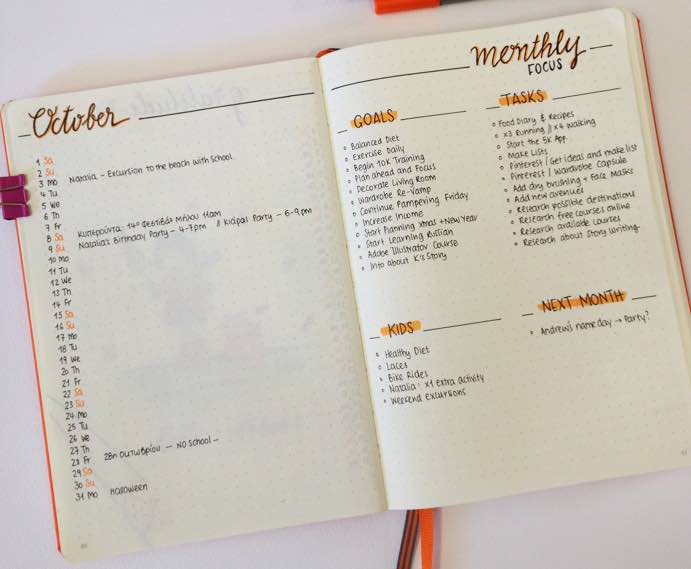 October
1 Sa
2 Su
3 Mo Natalia – Excursion to the beach with School
4 Tu
5 We
6 Th
7 Fr
8 Sa Κυπερούντα: 14ο Φεστιβάλ Μήλου 11am
9 Su Natalia's Birthday Party – 4-7pm // Party – 6-9pm
10 Mo
11 Tu
12 We
13 Th
14 Fr
15 Sa
16 Su
17 Mo
18 Tu
19 We
20 Th
21 Fr
22 Sa
23 Su
24 Mo
25 Tu
26 We
27 Th
28 Fr 28η Οκτωβρίου – NO School –
29 Sa
30 Su
31 Mo Halloween
monthly
FOCUS
GOALS
Balanced Diet
Exercise Daily
Begin 10K Training
Plan ahead and Focus
Decorate Living Room
Wardrobe Re-Vamp
Continue Pampering Friday
Increase Income
Start Planning Xmas + New Year
Start Learning Russian
Adobe Illustrator Course
Info about Story
TASKS
Food Diary & Recipes
x3 Running // x4 Walking
Start the 5K App
Make Lists
Pinterest / Get ideas and make list
Pinterest / Wardrobe Capsule
Add dry brushing + Face Masks
Add new avenues
Research possible destinations
Research free courses online
Research available courses
Research about Story Writing
KIDS
Healthy Diet
Laces
Bike Rides
Natalia: x1 extra activity
Weekend excursions
NEXT MONTH
Andrew's nameday → Party?